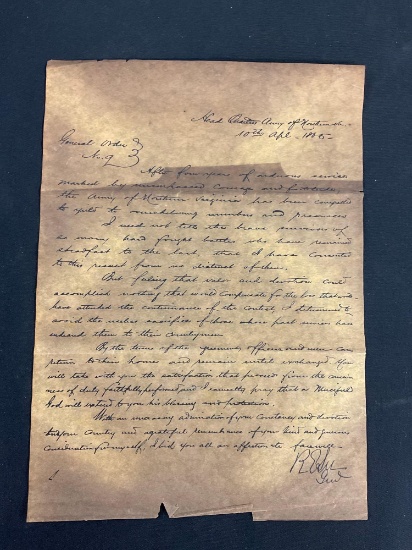 Head Quarters Army of Northern Va
10th Apl. 1865
General Order
No 9
After four years of arduous service
marked by unsurpassed Courage and fortitude
the Army of Northern Virginia has been compelled
to yield to overwhelming numbers and resources
I need not tell this brave survivors of
so many hard fought battles who have remained
steadfast to the last, that I have Consented
to this result from no distrust of them.
But feeling that valor and devotion could
accomplish nothing that would compensate for the loss that would
have attended the continuance of the Contest I determined to
avoid the useless sacrifice of those whose past services have
endeared them to their Countrymen
By the terms of the agreement officers and men can
return to their homes and remain until exchanged. You
will take with you the satisfaction that proceeds from the consciousness
of duty faithfully performed and I earnestly pray that a Merciful
God will extend to you his blessing and protection.
With an unceasing admiration of your Constancy and devotion
to your Country and a grateful remembrance of your kind and generous
Consideration for myself, I bid you all an affectionate farewell
R E Lee
Genl